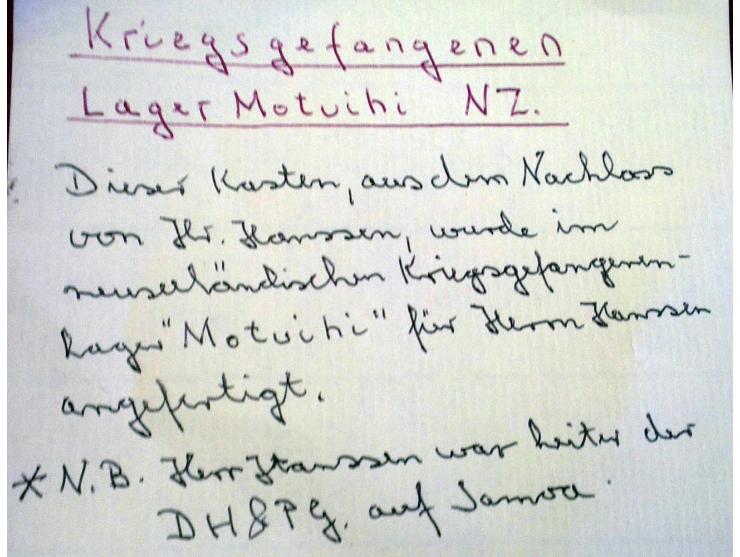 Kriegsgefangenen
Lager Motuihi NZ.
Dieser Kasten, aus dem Nachlass
von Hr. Hanssen, wurde im
neuseeländischen Kriegsgefangenen-
Lager "Motuihi" für Herrn Hanssen
angefertigt.
* N.B. Herr Hanssen war Leiter der
DH&PG. auf Samoa.